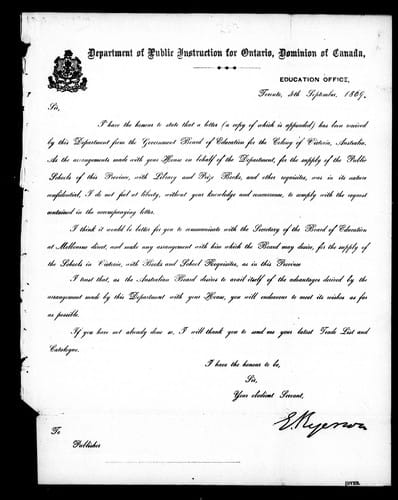 Department of Public Instruction for Ontario, Dominion of Canada,
EDUCATION OFFICE,
Toronto, 8th September, 1869.
Sir,
I have the honour to state that a letter (a copy of which is appended) has been received
by this Department from the Government Board of Education for the Colony of Victoria, Australia.
As the arrangements made with your House on behalf of the Department, for the supply of the Public
Schools of this Province, with Library and Prize Books, and other requisites, was in its nature
confidential, I do not feel at liberty, without your knowledge and concurrence, to comply with the request
contained in the accompanying letter.
I think it would be better for you to communicate with the Secretary of the Board of Education
at Melbourne direct, and make any arrangement with him which the Board may desire, for the supply of
the Schools in Victoria, with Books and School Requisites, as in this Province
I trust that, as the Australian Board desires to avail itself of the advantages derived by the
arrangement made by this Department with your House, you will endeavour to meet its wishes as far
as possible.
If you have not already done so, I will thank you to send me your latest Trade List and
Catalogue.
I have the honour to be,
Sir,
Your obedient Servant,
E. Ryerson
To
Publisher
OVER